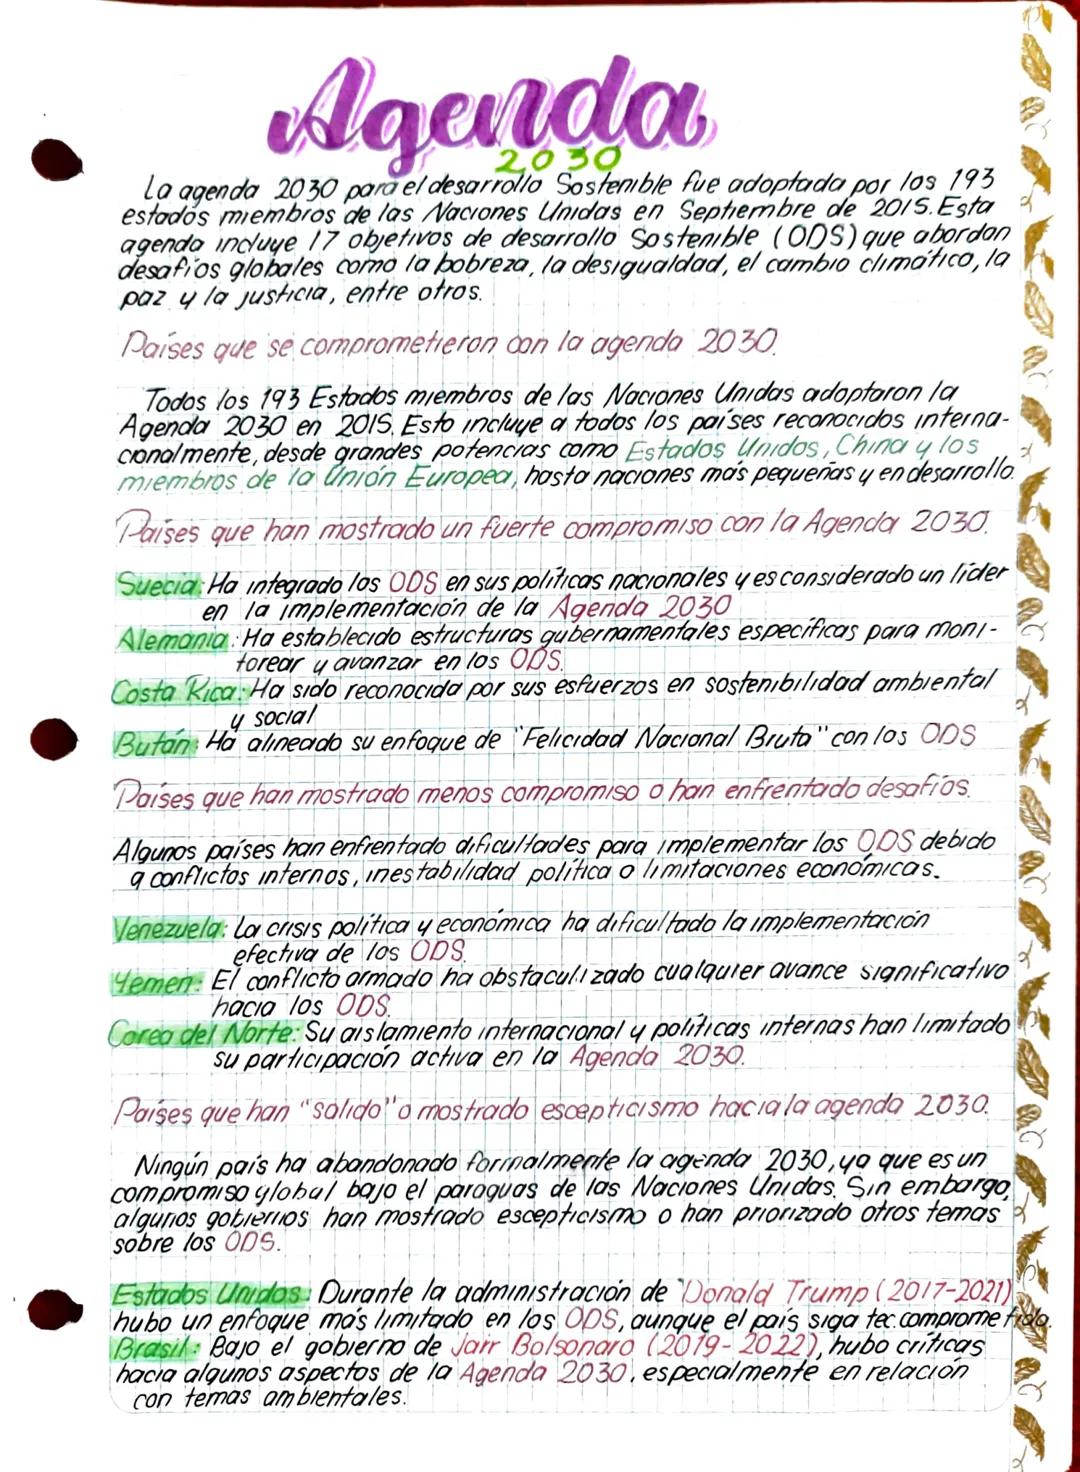 Agenda
2030
La agenda 2030 para el desarrollo Sostenible fue adoptada por los 193
estados miembros de las Naciones Unidas en Septiembre de 2015. Esta
agenda incluye 17 objetivos de desarrollo Sostenible (ODS) que abordan
desafíos globales como la bobreza, la desigualdad, el cambio climático, la
paz y la justicia, entre otros.
Países que se comprometieron con la agenda 2030.
Todos los 193 Estados miembros de las Naciones Unidas adoptaron la
Agenda 2030 en 2015. Esto incluye a todos los países reconocidos interna-
cionalmente, desde grandes potencias como Estados Unidos, China y los
miembros de la Unión Europea, hasta naciones más pequeñas y en desarrollo.
Países que han mostrado un fuerte compromiso con la Agenda 2030.
Suecia: Ha integrado los ODS en sus políticas nacionales y es considerado un líder
en la implementación de la Agenda 2030
Alemania: Ha establecido estructuras gubernamentales específicas para moni-
torear y avanzar en los ODS.
Costa Rica: Ha sido reconocida por sus esfuerzos en sostenibilidad ambiental
y social
Bután: Ha alineado su enfoque de "Felicidad Nacional Bruta" con los ODS
Países que han mostrado menos compromiso o han enfrentado desafíos.
Algunos países han enfrentado dificultades para implementar los ODS debido
a conflictos internos, inestabilidad política o limitaciones económicas.
Venezuela: La crisis política y económica ha dificultado la implementación
efectiva de los ODS.
Yemen: El conflicto armado ha obstaculizado cualquier avance significativo
hacia los ODS.
Corea del Norte: Su aislamiento internacional y políticas internas han limitado
su participación activa en la Agenda 2030.
Países que han "salido" o mostrado escepticismo hacia la agenda 2030.
Ningún país ha abandonado formalmente la agenda 2030, ya que es un
compromiso global bajo el paraguas de las Naciones Unidas. Sin embargo,
algunos gobiernos han mostrado escepticismo o han priorizado otros temas
sobre los ODS.
Estados Unidos: Durante la administración de Donald Trump (2017-2021)
hubo un enfoque más limitado en los ODS, aunque el país siga tec. comprometido.
Brasil: Bajo el gobierno de Jair Bolsonaro (2019-2022), hubo críticas
hacia algunos aspectos de la Agenda 2030, especialmente en relación
con temas ambientales.